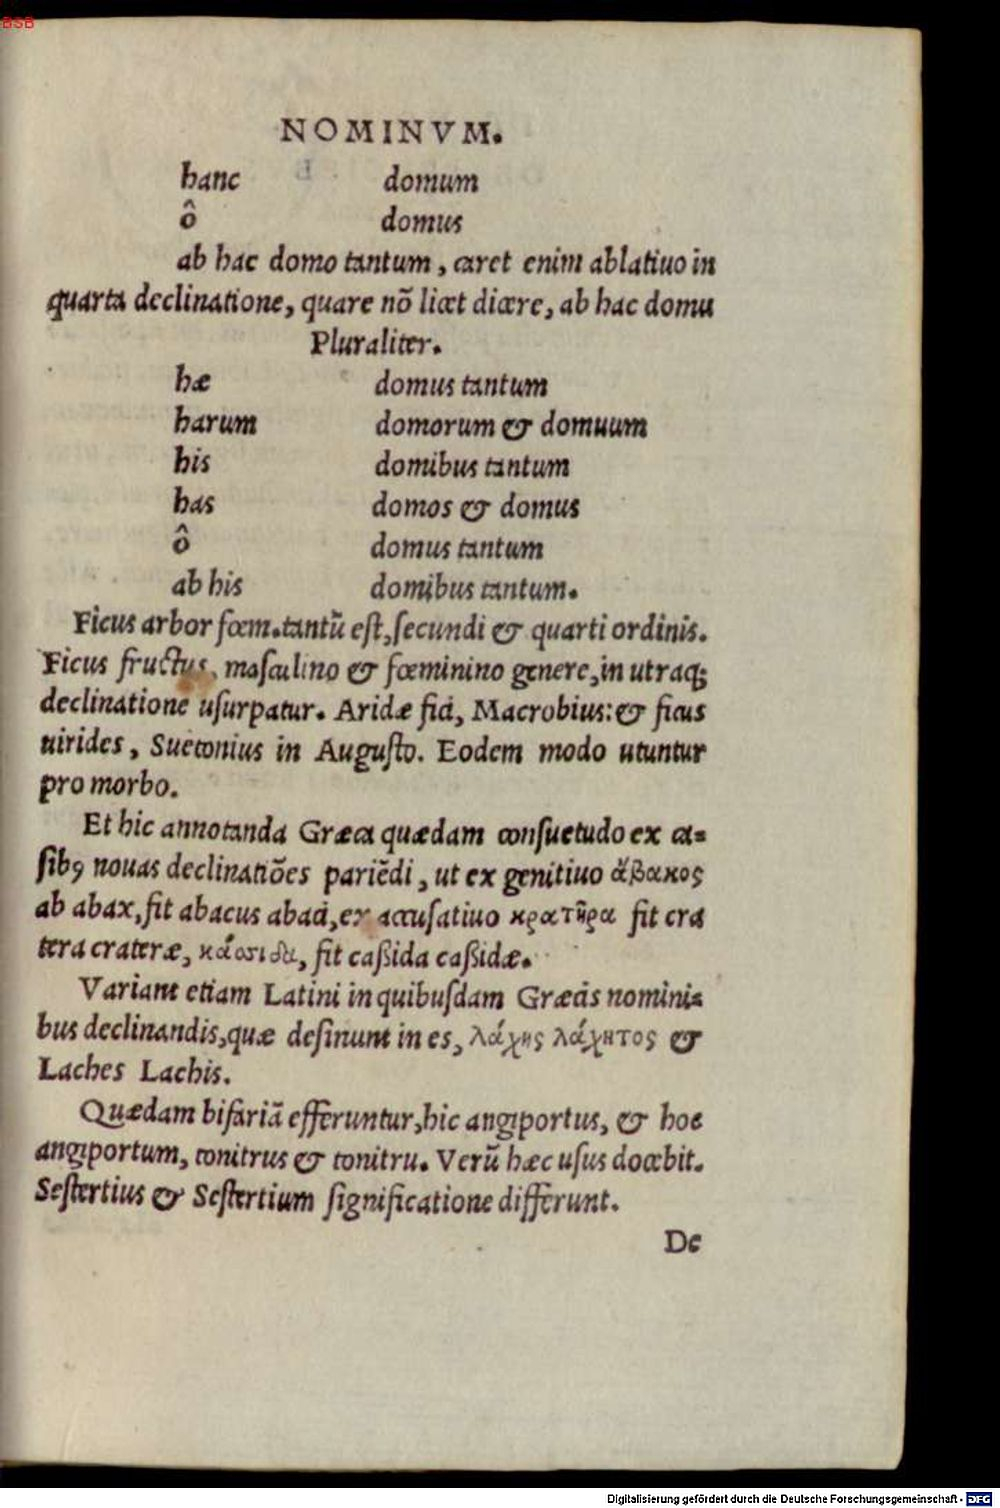 BSB
NOMINVM.
hanc domum
ô domus
ab hac domo tantum, caret enim ablatiuo in
quarta declinatione, quare nõ licet dicere, ab hac domu
Pluraliter.
hæ domus tantum
harum domorum & domuum
his domibus tantum
has domos & domus
ô domus tantum
ab his domibus tantum.
Ficus arbor fœm.tantũ eſt,ſecundi & quarti ordinis.
Ficus fructus, maſculino & fœminino genere,in utraq;
declinatione uſurpatur. Aridæ fici, Macrobius:& ficus
uirides, Suetonius in Auguſto. Eodem modo utuntur
pro morbo.
Et hic annotanda Græca quædam conſuetudo ex ca=
ſibꝰ nouas declinatiões pariẽdi, ut ex genitiuo ἄβακος
ab abax,fit abacus abaci,ex accuſatiuo κρατῆρα fit cra
tera crateræ, κάσσιδα, fit caßida caßidæ.
Variant etiam Latini in quibuſdam Græcis nomini=
bus declinandis,quæ deſinunt in es, λάχης λάχητος &
Laches Lachis.
Quædam bifariã efferuntur,hic angiportus, & hoc
angiportum, tonitrus & tonitru. Verũ hæc uſus docebit.
Seſtertius & Seſtertium ſignificatione differunt.
De
Digitalisierung gefördert durch die Deutsche Forschungsgemeinschaft - DFG